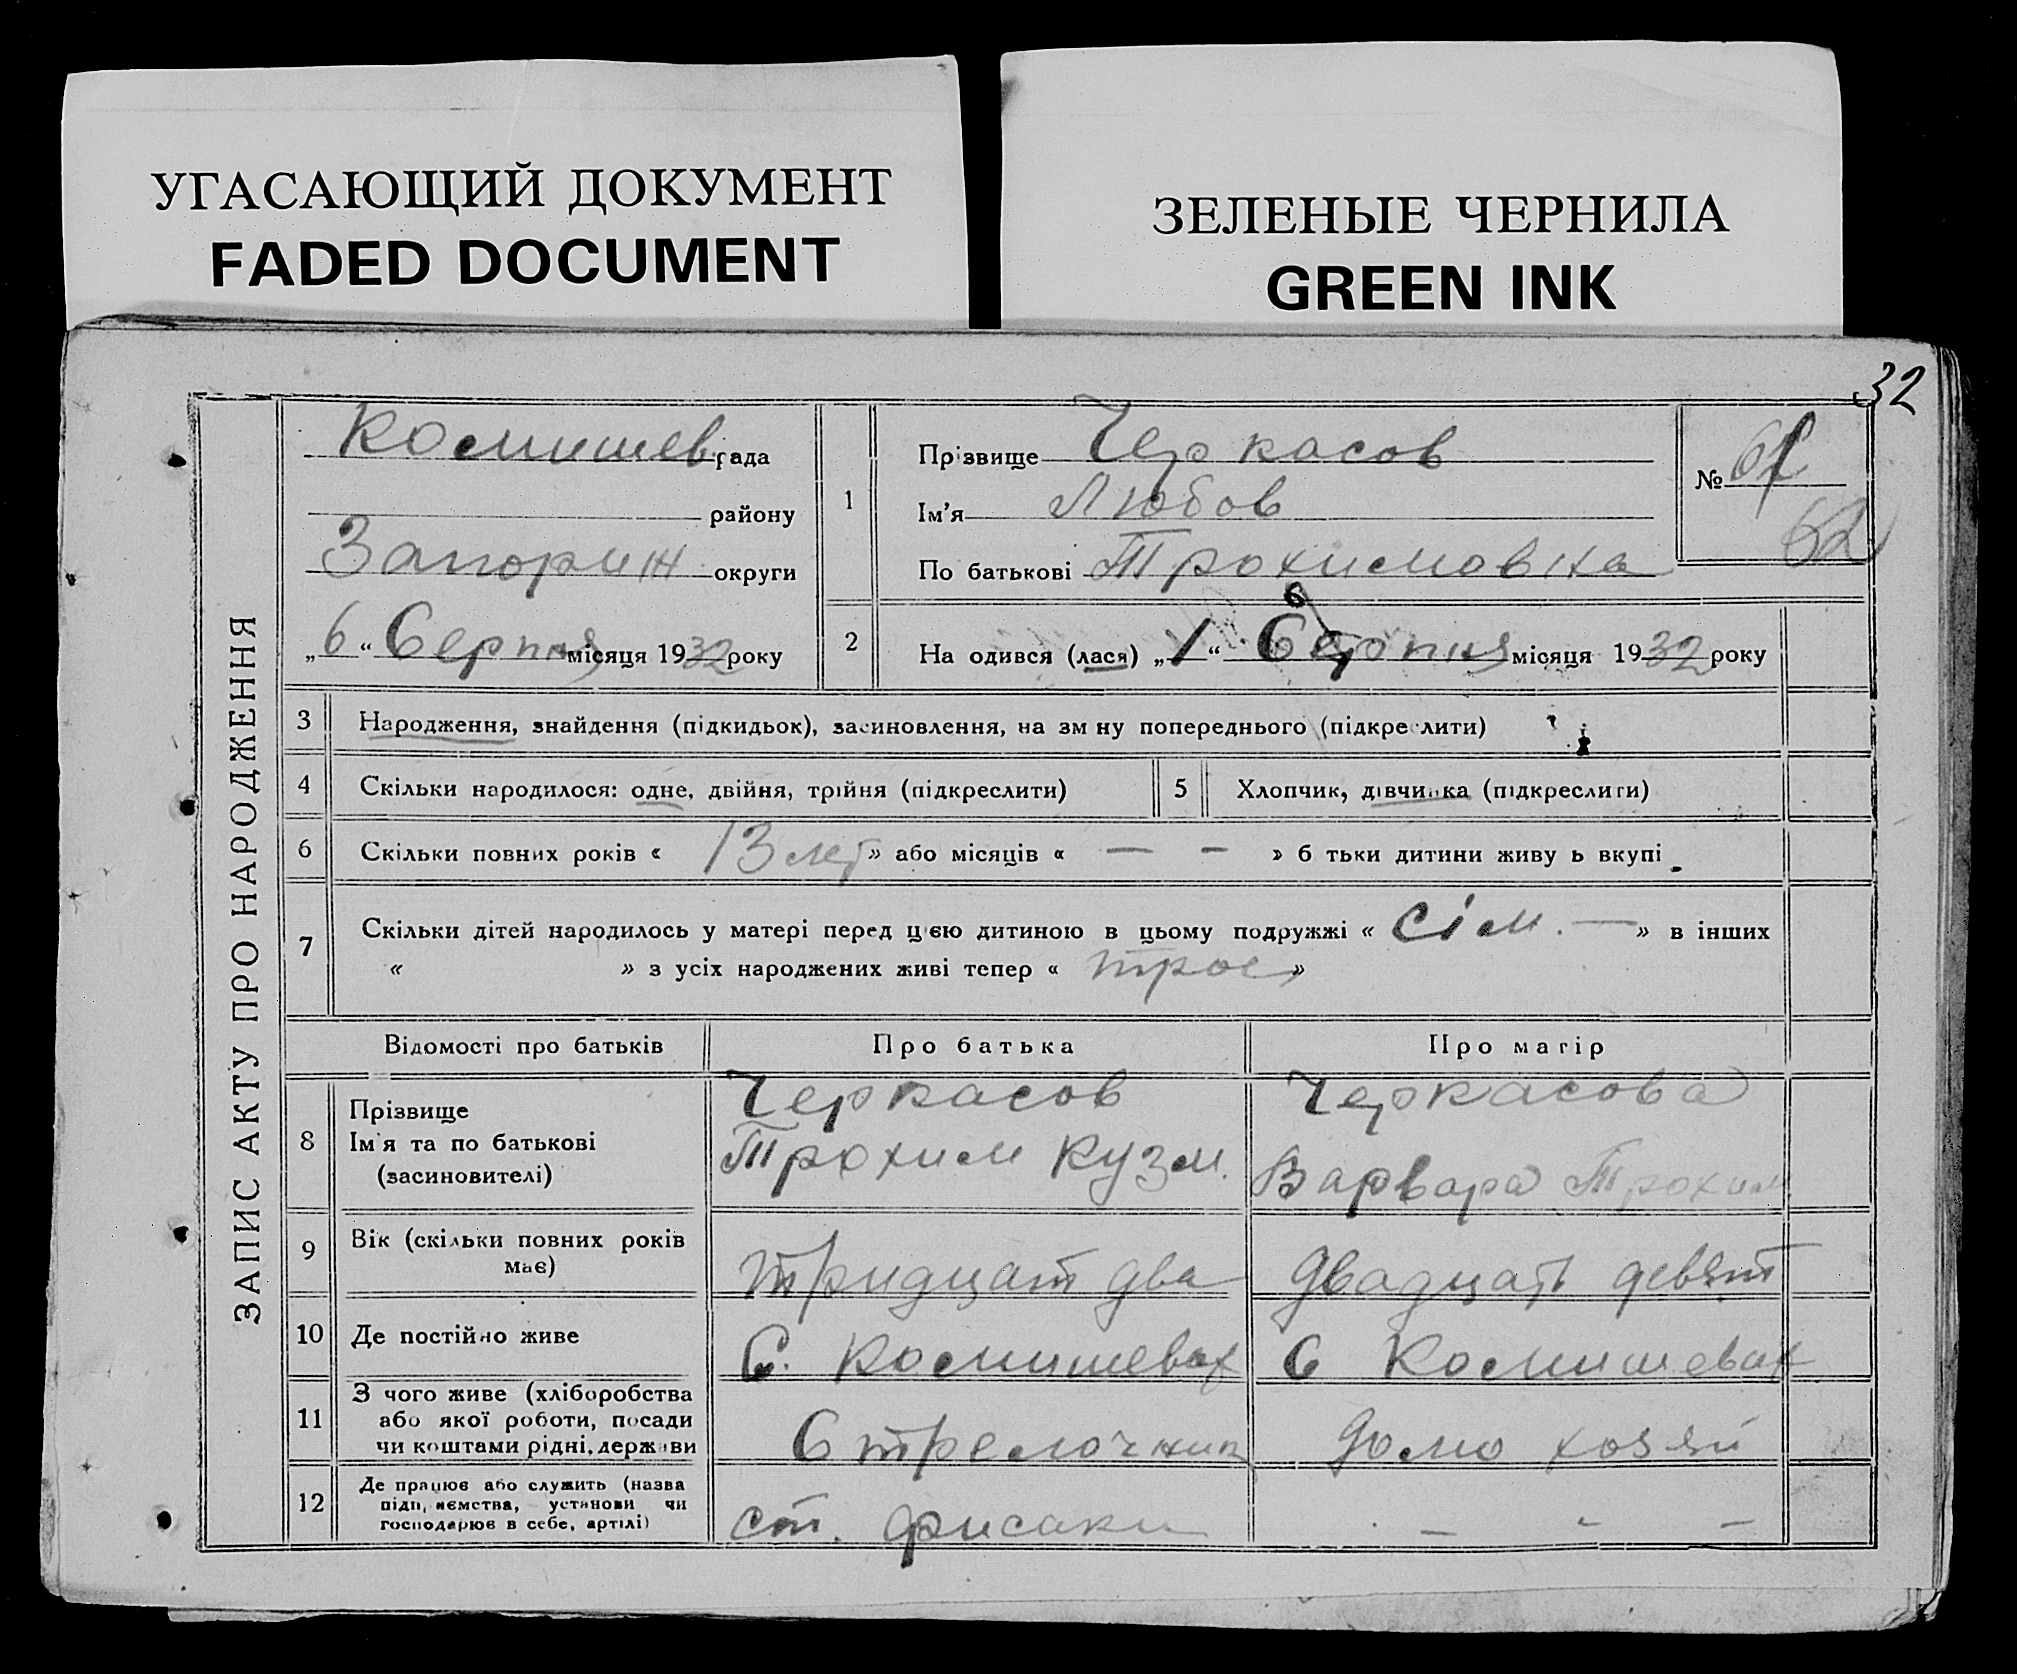 УГАСАЮЩИЙ ДОКУМЕНТ
FADED DOCUMENT
ЗЕЛЕНЫЕ ЧЕРНИЛА
GREEN INK
32
ЗАПИС АКТУ ПРО НАРОДЖЕННЯ
Комишев рада
району
Запориж округи
„6“ Серпня місяця 1932 року
1
Прізвище Черкасов
Ім'я Любов
По батькові Трохимовна
№ 61
62
2
На одився (лася) „1“ Серпня місяця 1932 року
6
3 Народження, знайдення (підкидьок), засиновлення, на зм ну попереднього (підкреслити)
4 Скільки народилося: одне, двійня, трійня (підкреслити)
5 Хлопчик, дівчинка (підкреслити)
6 Скільки повних років « 13 лет » або місяців « — — » б тьки дитини живу ь вкупі
7 Скільки дітей народилось у матері перед цією дитиною в цьому подружжі « сім. — » в інших
« » з усіх народжених живі тепер « трое »
Відомості про батьків
Про батька
Про матір
8
Прізвище
Ім'я та по батькові
(засиновителі)
Черкасов
Трохим Кузм.
Черкасова
Варвара Трохим.
9
Вік (скільки повних років
має)
тридцат два
двадцать девят
10 Де постійно живе
С. Комишеват
С Комишеват
11
З чого живе (хліборобства
або якої роботи, посади
чи коштами рідні, держави
Стрелочник
Домо хозяй
12
Де працює або служить (назва
підприємства, установи чи
господарює в себе, артілі)
ст. Фисаки
— - —